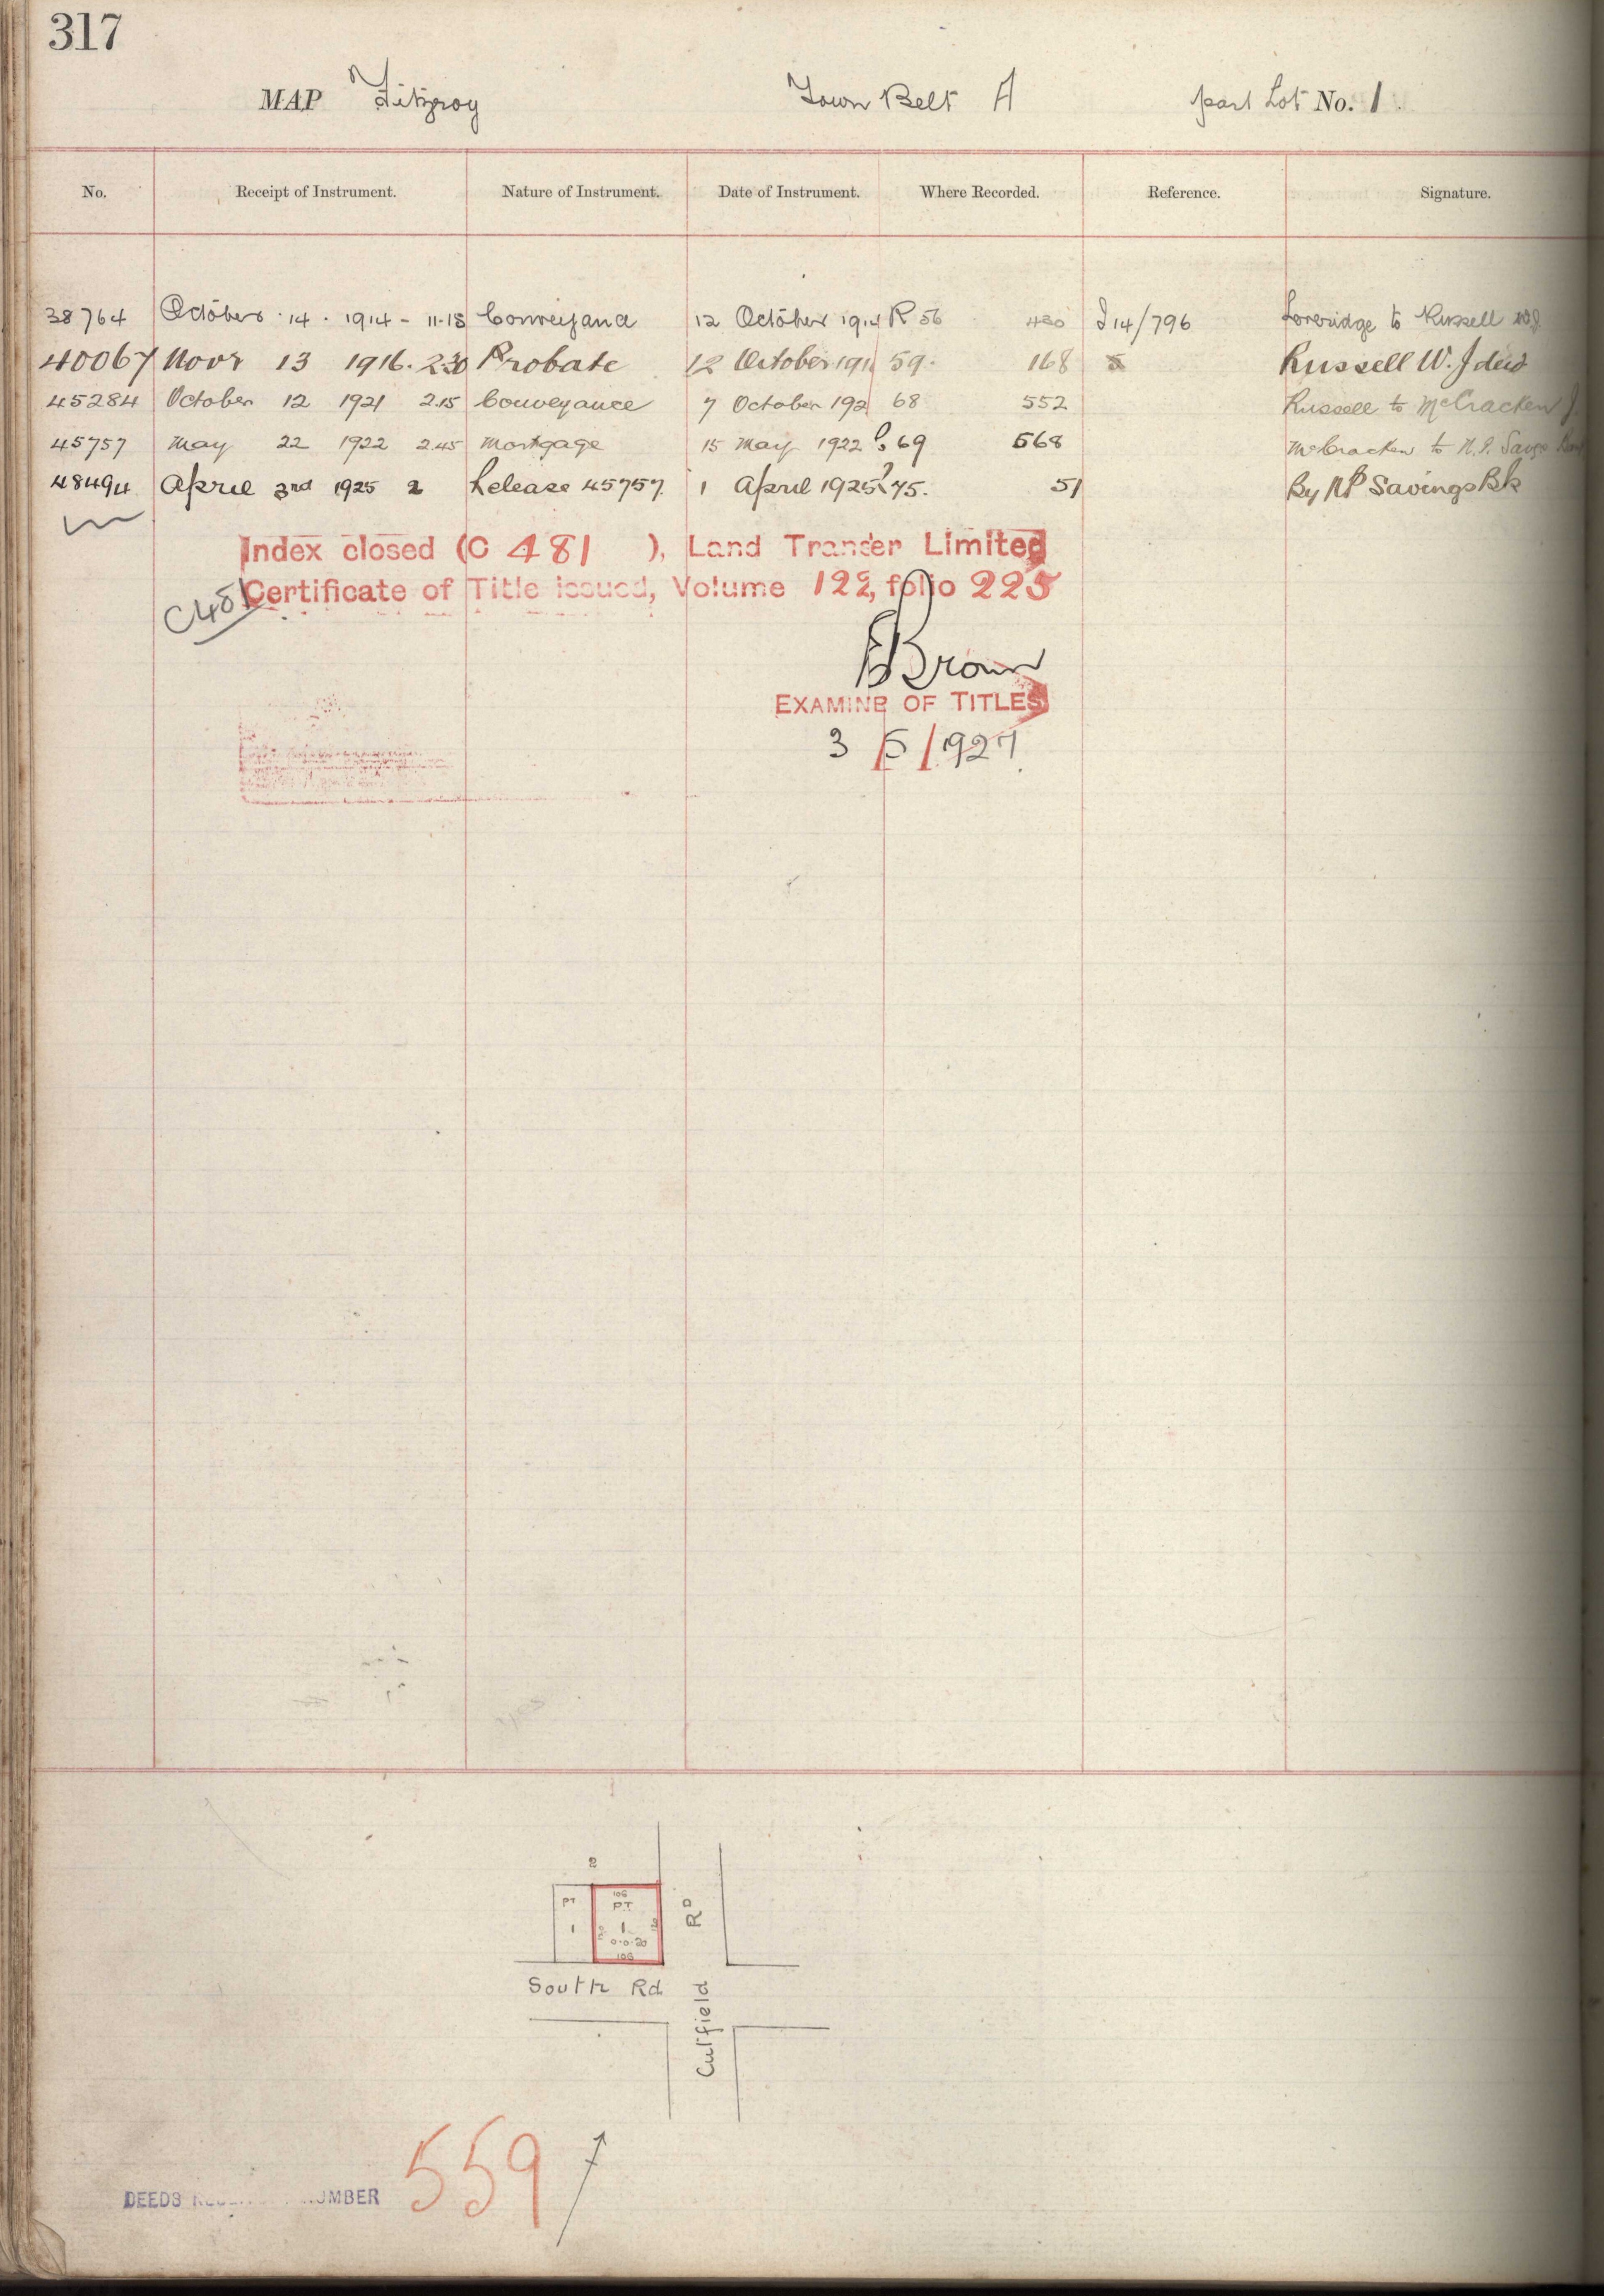 317
MAP Fitzroy Town Belt A part Lot No. 1
No. Receipt of Instrument. Nature of Instrument. Date of Instrument. Where Recorded. Reference. Signature.
38764 October 14 . 1914 - 11-15 Conveyance 12 October 1914 R 56 480 I14/796 to Russell WJ
40067 Novr 13 1916. 2.30 Probate 12 October 191 59. 168 Russell W. J decd
45284 October 12 1921 2.15 Conveyance 7 October 192 68 552 Russell to McCracken J
45757 May 22 1922 2.45 Mortgage 15 May 1922 69 568 McCracken to N.P. Savgs Bank
48494 April 3rd 1925 2 Release 45757 1 April 1925 75. 51 By NP Savings Bk
Index closed (C 481 ), Land Transfer Limited
Certificate of Title issued, Volume 122, folio 225
C481
Brown
EXAMINER OF TITLES
3 / 5 / 1927
2
PT 106 PT
1 1
0-0-20
106
RD
South Rd
Cutfield
DEEDS NUMBER 559